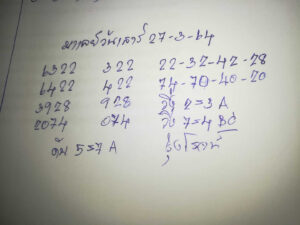 มาเลย์วันเสาร์ 27-3-64
6322 322 22-32-42-28
6422 422 74-70-40-20
3928 928 วิ่ง 2=3 A
2074 074 วิ่ง 7=4 BC
ดับ 5=7 A รุ่งโรจน์